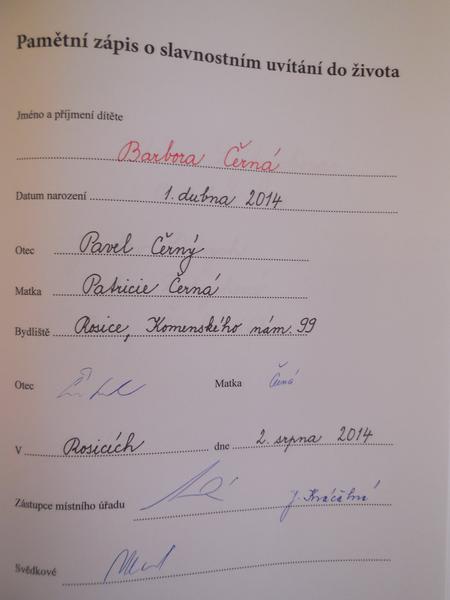 Pamětní zápis o slavnostním uvítání do života
Jméno a příjmení dítěte
Barbora Černá
Datum narození 1. dubna 2014
Otec Pavel Černý
Matka Patricie Černá
Bydliště Rosice, Komenského nám. 99
Otec Matka Černá
V Rosicích dne 2. srpna 2014
Zástupce místního úřadu
Svědkové